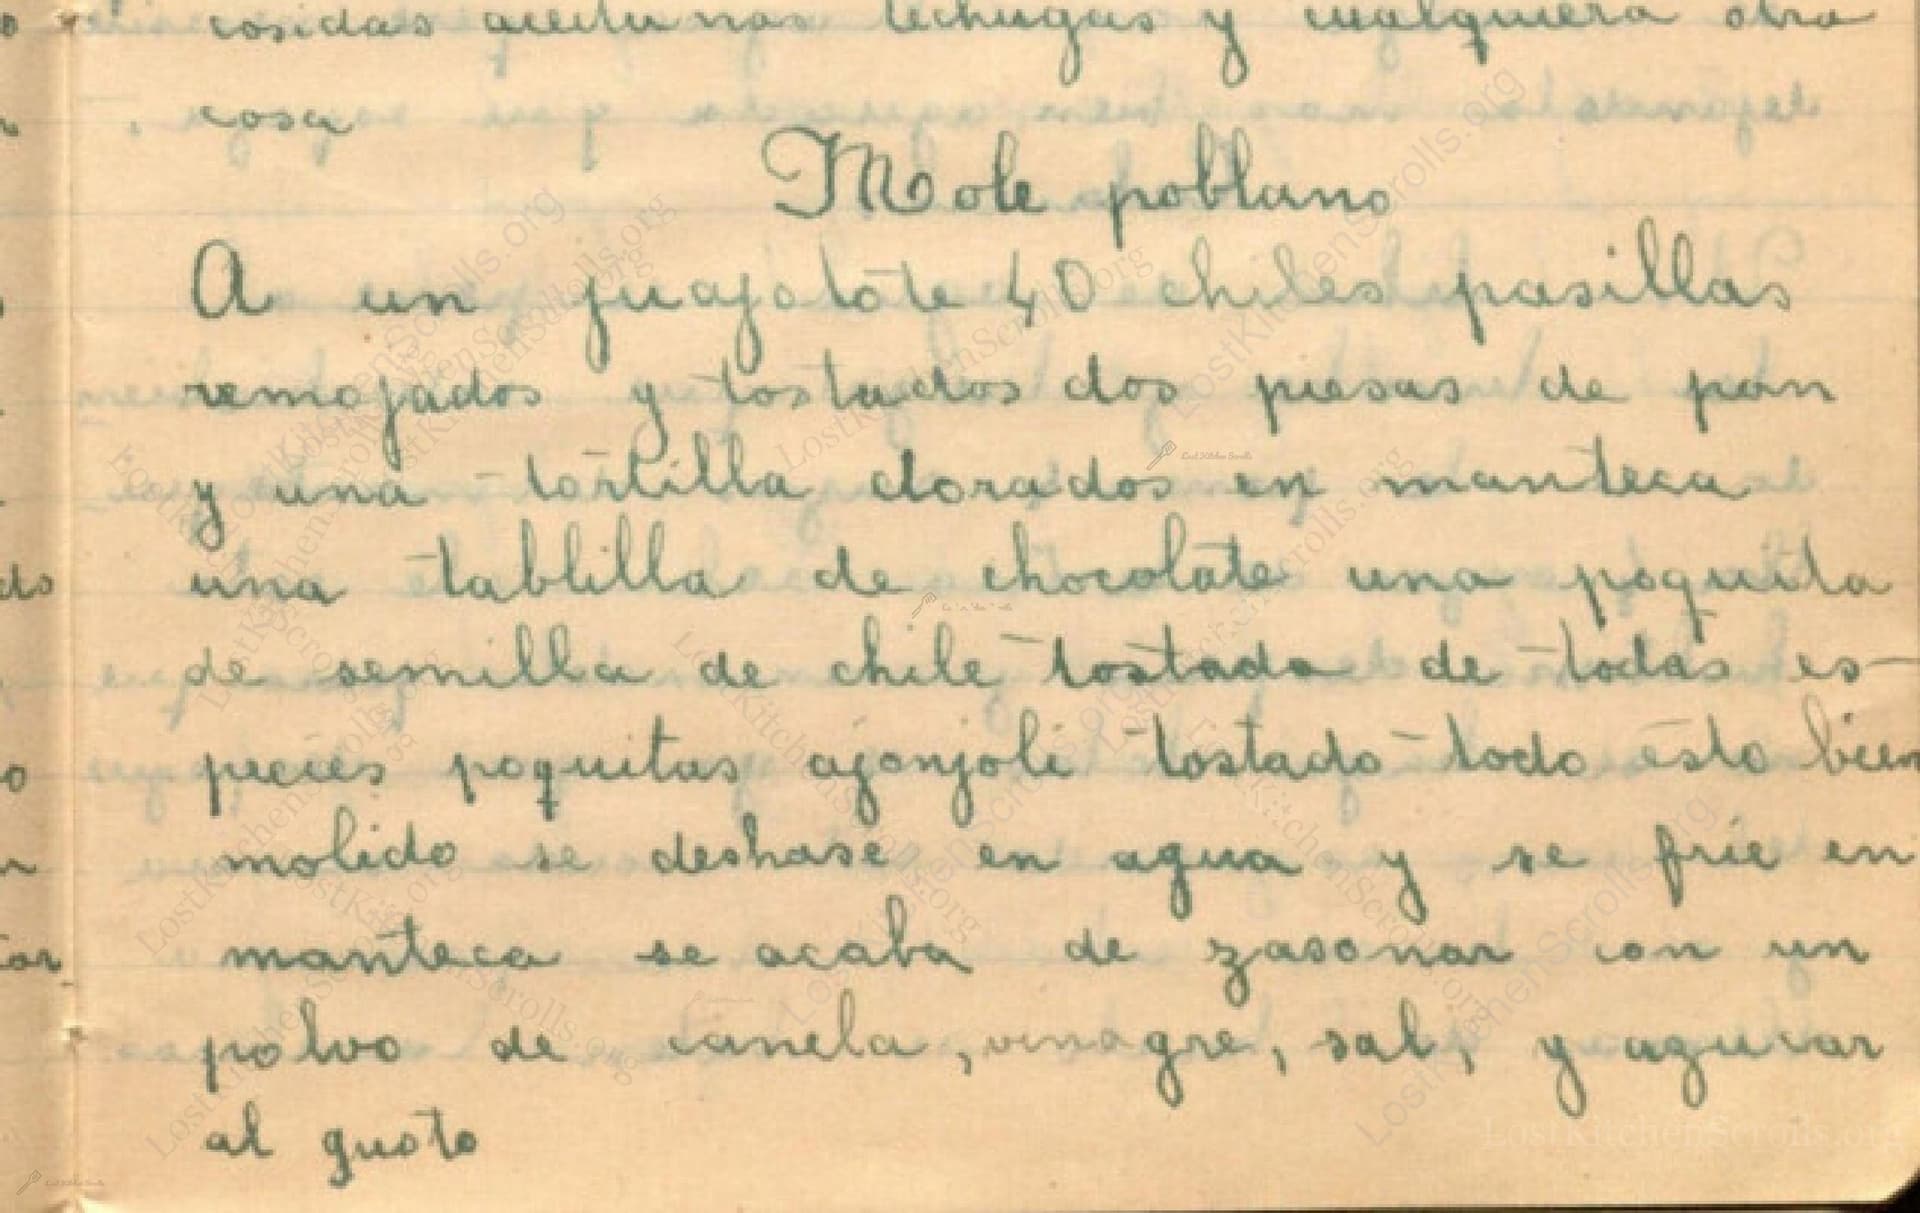 cosidas aceitunas lechugas y cualquiera otra
cosa
Mole poblano
A un juajolote 40 chiles pasillas
remojados y tostados dos piesas de pan
y una tortilla dorados en manteca
una tablilla de chocolate una poquita
de semilla de chile tostada de todas es-
pecies poquitas ajonjoli tostado todo esto bien
molido se deshase en agua y se frie en
manteca se acaba de zasonar con un
polvo de canela, vinagre, sal, y azucar
al gusto
LostKitchenScrolls.org